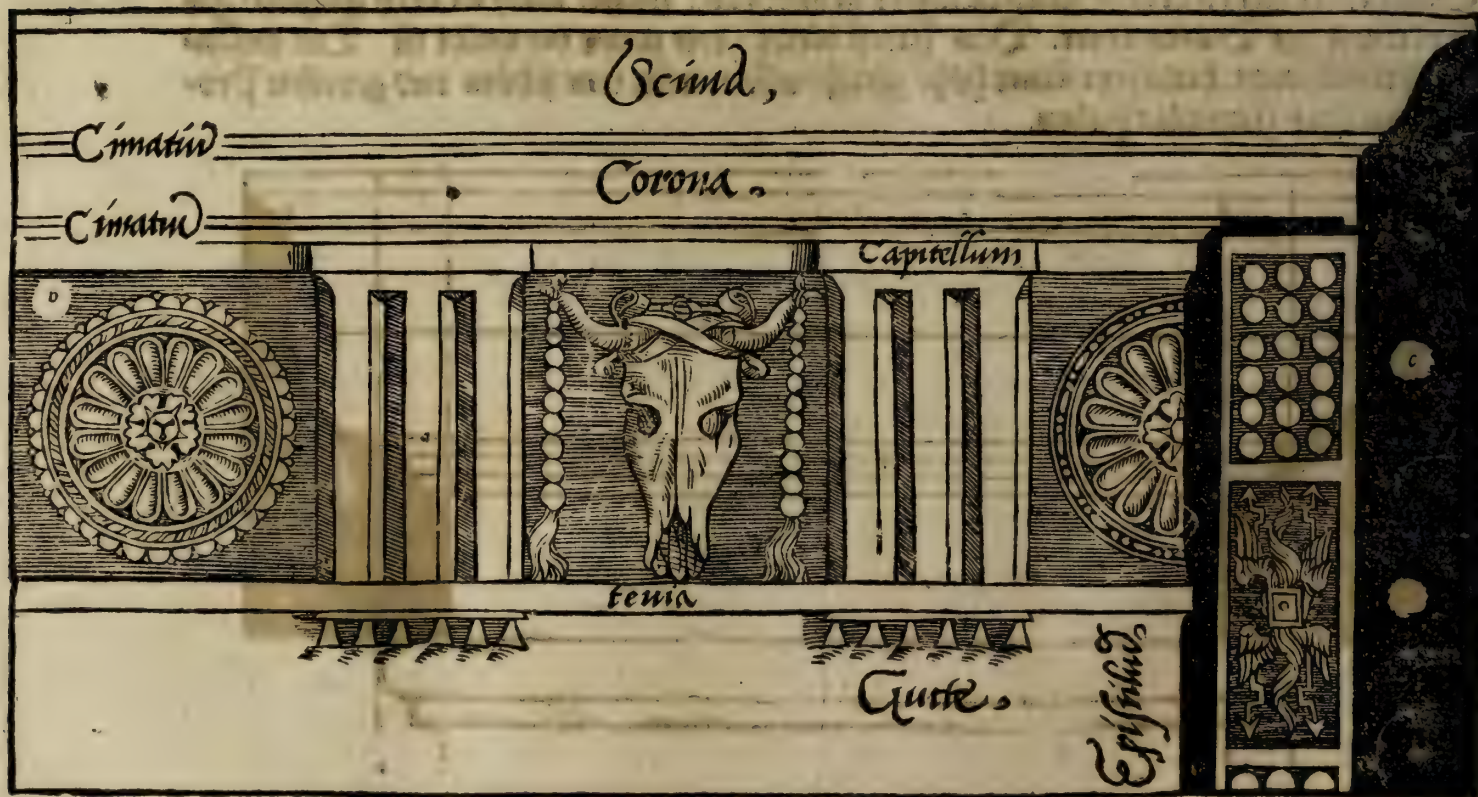 Scima,
Cimatiũ
Corona.
Cimatiũ
Capitellum
D
C
tenia
Gutte.
Epistiliũ,